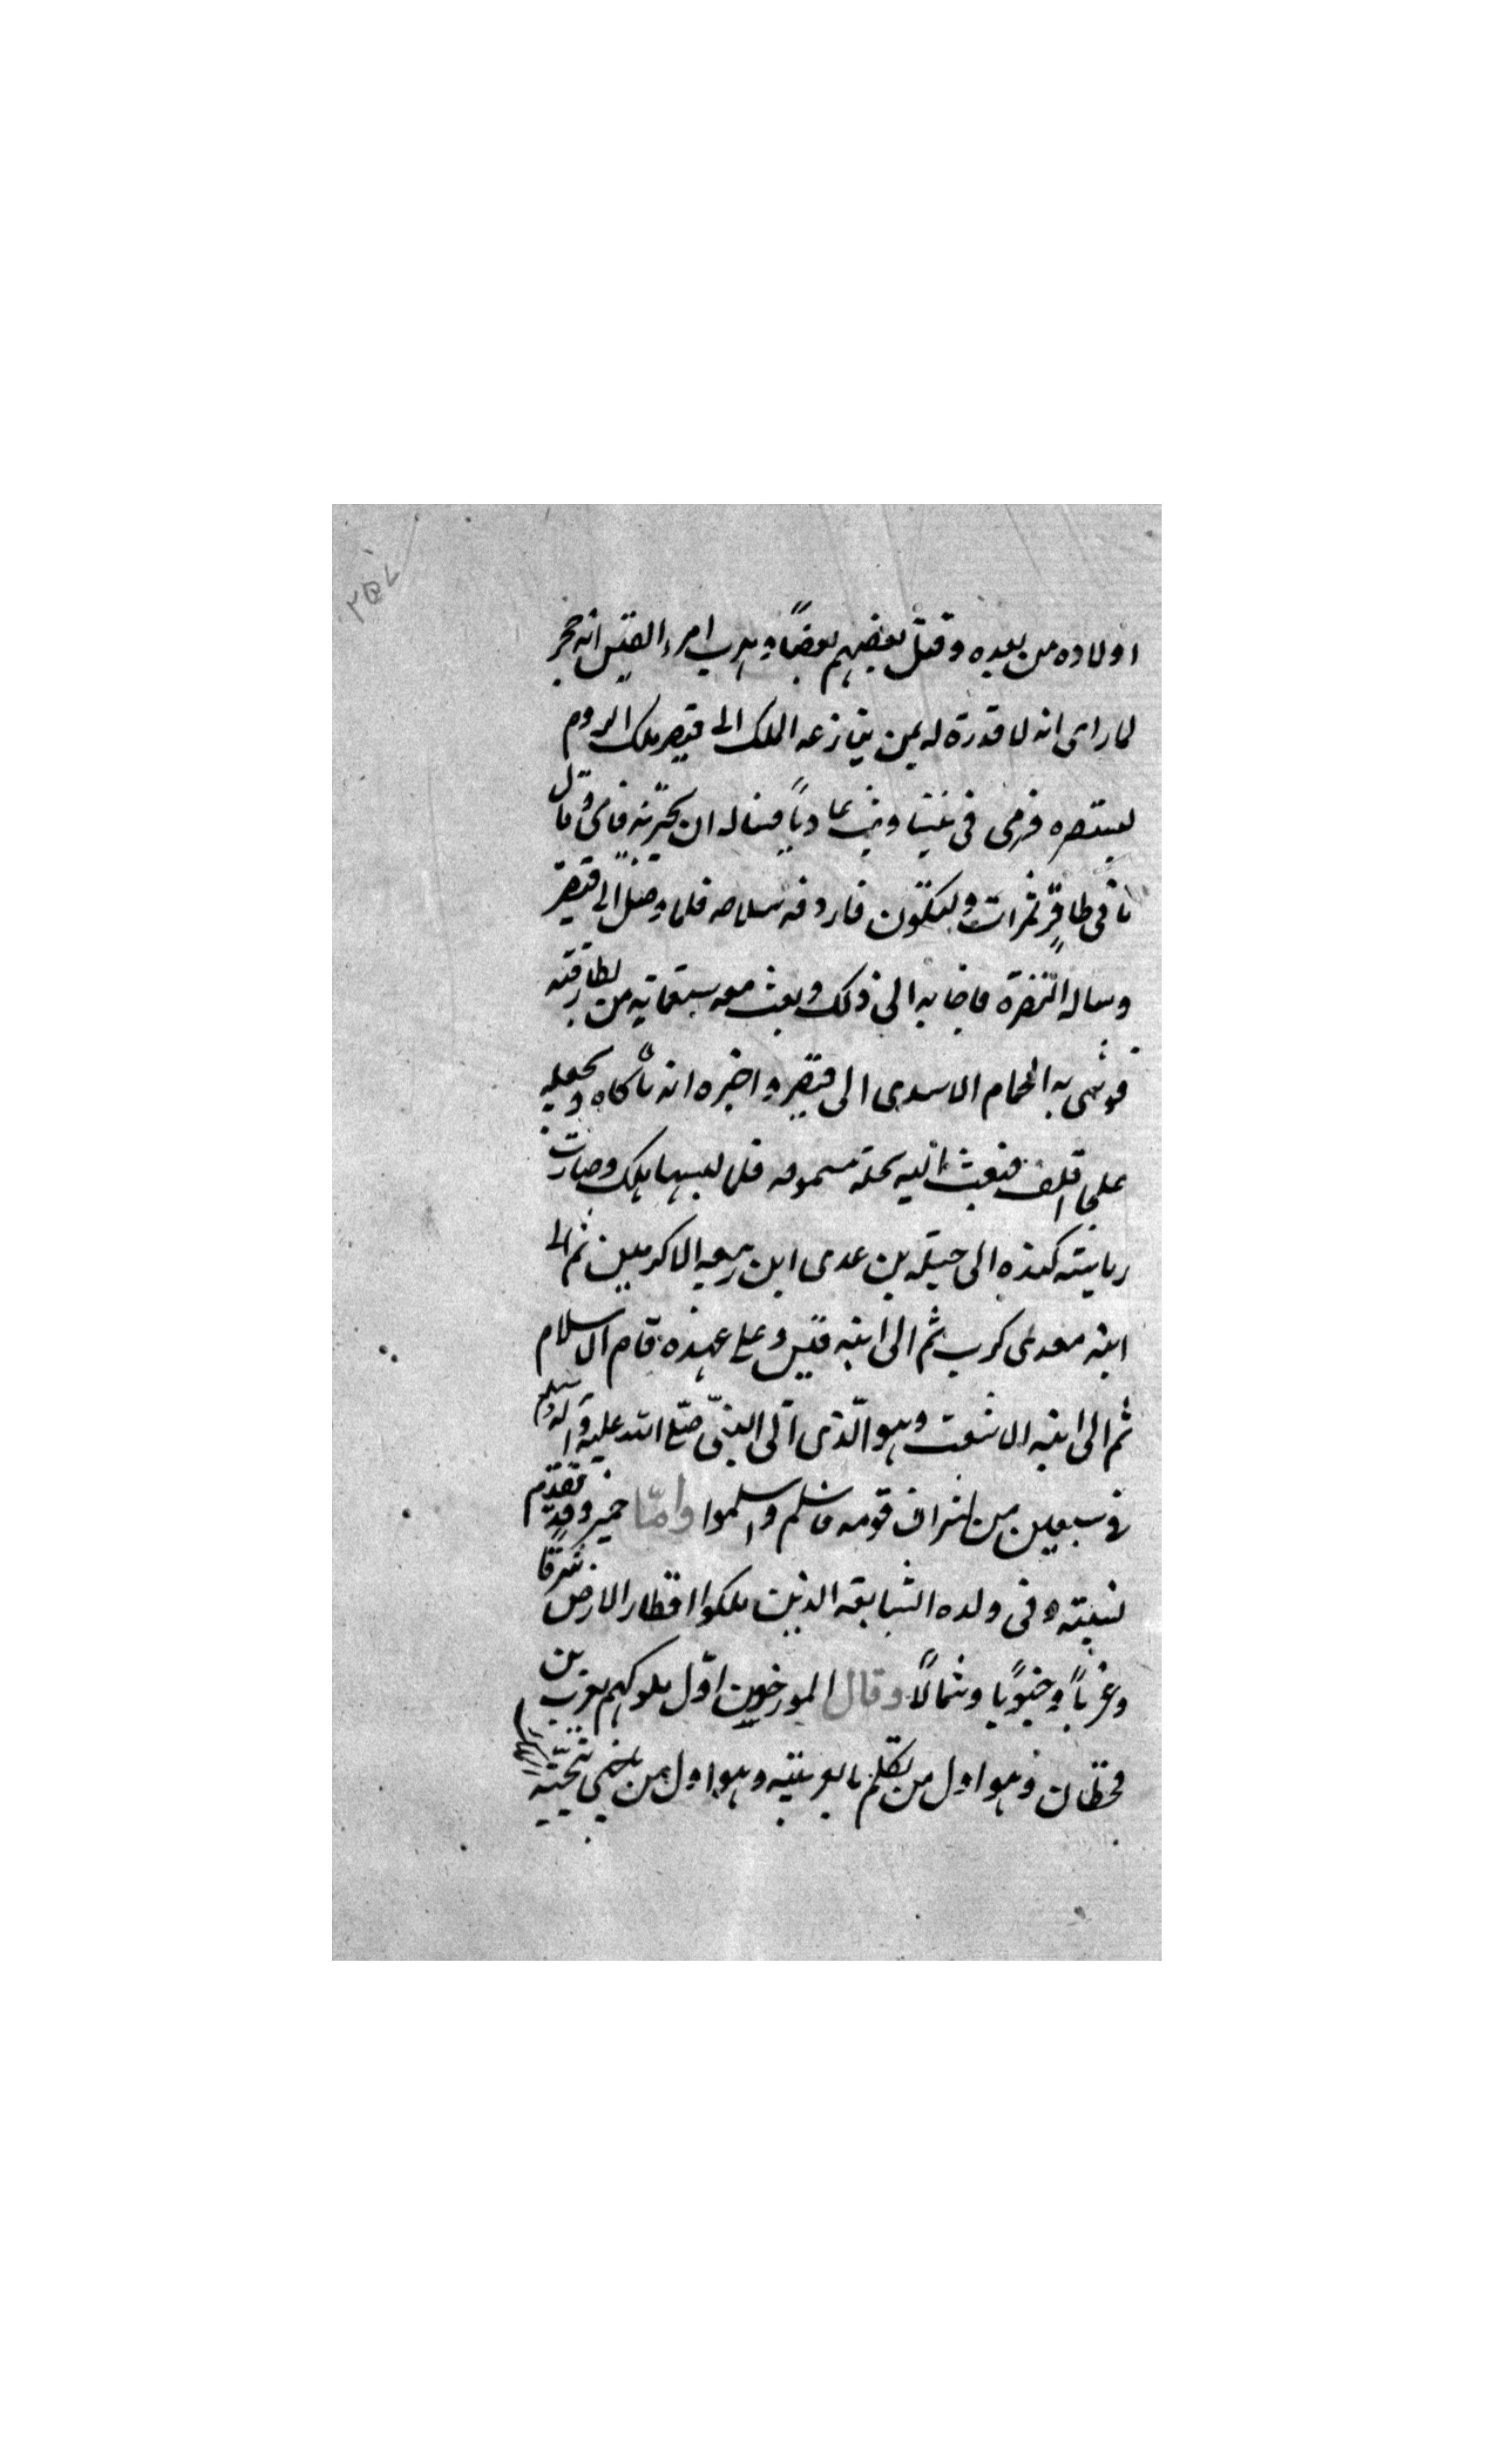 ٢٥٧
اولاده من بعده وقتل بعضهم بعضاً وهرب امرء القيس ابن حجر
لما راى انه لا قدرة له بمن ينازعه الملك الى قيصر ملك الروم
ليستنصره فرمى فى تيماء عاديا فساله ان فابى وقال
فلما وصل الى قيصر
وساله النصرة فاجابه الى ذلك وبعث معه ستمائة من بطارقته
فوشى به الطماح الاسدى الى قيصر واخبره انه
على اقلف فبعث اليه بحلة مسمومه فلما لبسها هلك وصارت
رياسته كنده الى جبله بن عدى ابن ربيعه الاكرمين ثم الى
ابنه معدى كرب ثم الى ابنه قيس وعلى عهده قام الاسلام
ثم الى ابنه الاشعث وهو الّذى اتى النبىّ صلّى الله عليه وآله وسلم
فى سبعين من اشراف قومه فاسلم واسلموا وامّا حمير وقد تقدم
نسبته وفى ولده التبابعه الذين ملكوا اقطار الارض شرقا
وغرباً وجنوباً وشمالاً وقال المورخون اوّل ملوكهم يعرب بن
قحطان وهو اول من تكلم بالعربيّه وهو اول من حيّى بتحيّه